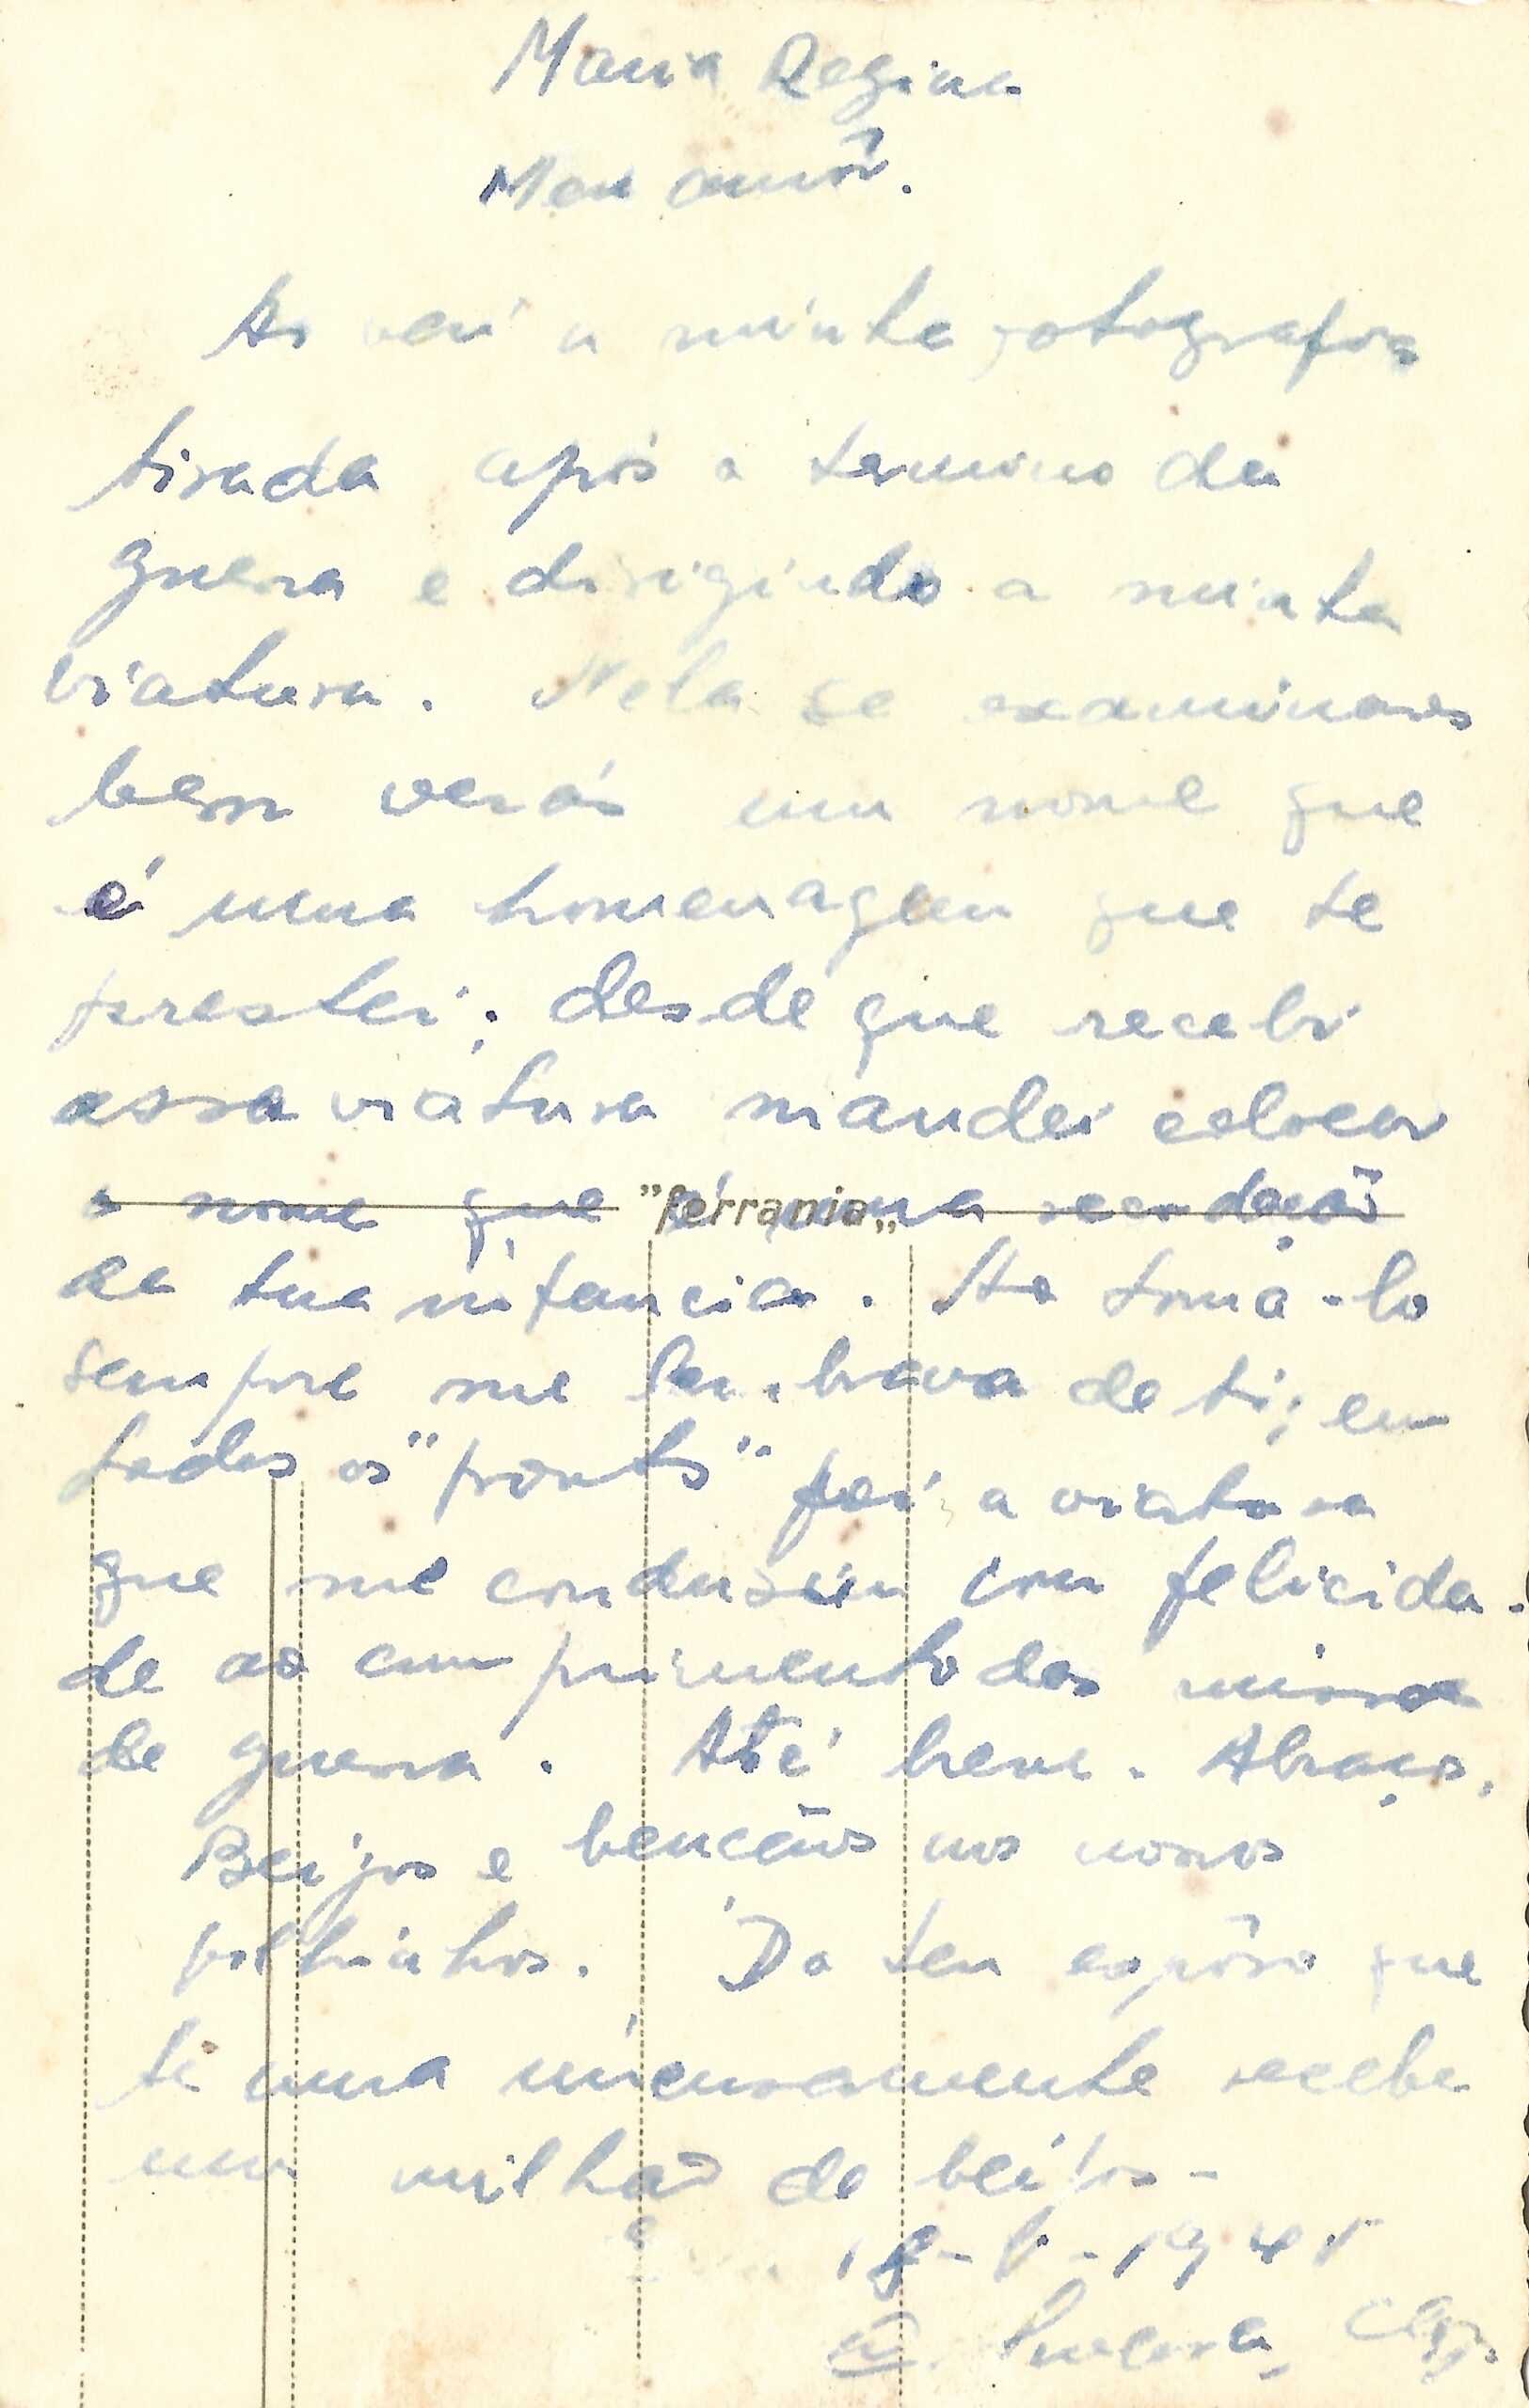 Maria Regina
Meu amôr.
Ao verí a minha fotografia
tirada após o termino da
guerra e dirigindo a minha
viatura. Nela se examinares
bem verás um nome que
é uma homenagem que te
prestei; desde que recebi
essa viatura mandei colocar
o nome que é uma recordação
"ferrania"
da tua infancia. Ao tomá-lo
sempre me lembrava de ti; em
todos os "fronts" foi a viatura
que me condusiu com felicida-
de ao cumprimento das
de guerra. Até breve. Abraços,
Beijos e bencãos nos nossos
filhinhos. Do teu espôso que
te ama imensamente recebe
um milhão de beijos-
18- -1945